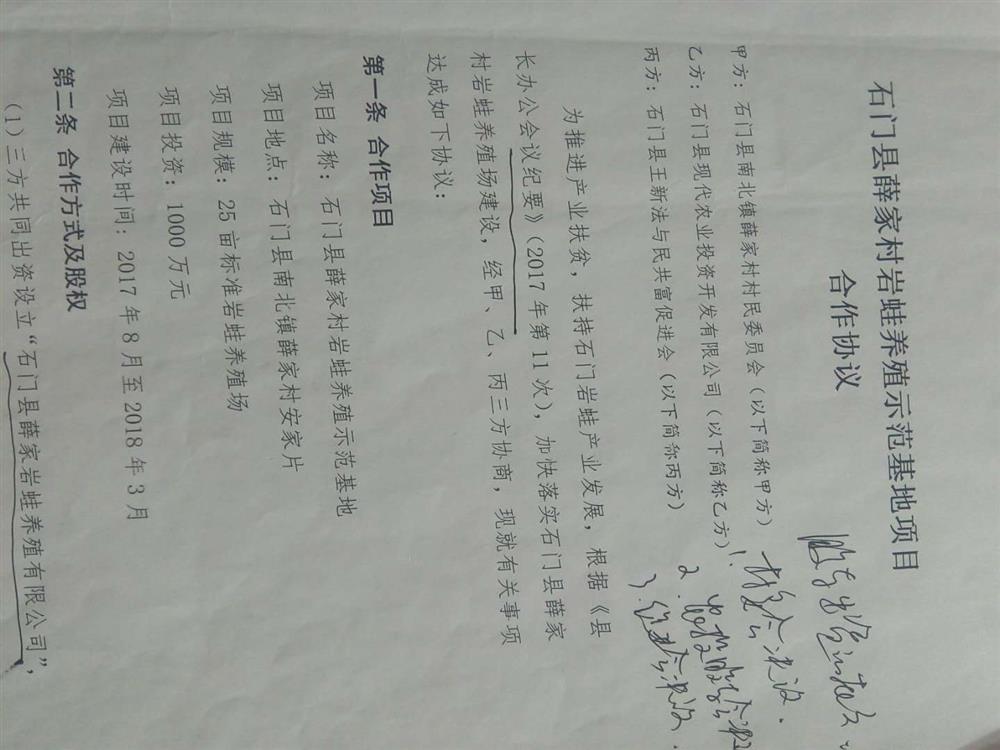 石门县薛家村岩蛙养殖示范基地项目
合作协议
甲方：石门县南北镇薛家村村民委员会（以下简称甲方）
乙方：石门县现代农业投资开发有限公司（以下简称乙方）
丙方：石门县王新法与民共富促进会（以下简称丙方）
为推进产业扶贫，扶持石门岩蛙产业发展，根据《县
长办公会议纪要》（2017年第11次），加快落实石门县薛家
村岩蛙养殖场建设，经甲、乙、丙三方协商，现就有关事项
达成如下协议：
第一条 合作项目
项目名称：石门县薛家村岩蛙养殖示范基地
项目地点：石门县南北镇薛家村安家片
项目规模：25亩标准岩蛙养殖场
项目投资：1000万元
项目建设时间：2017年8月至2018年3月
第二条 合作方式及股权
（1）三方共同出资设立“石门县薛家岩蛙养殖有限公司”，